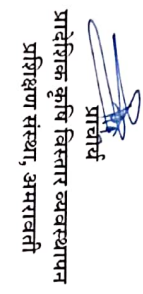 प्राचार्य
प्रादेशिक कृषि विस्तार व्यवस्थापन
प्रशिक्षण संस्था, अमरावती